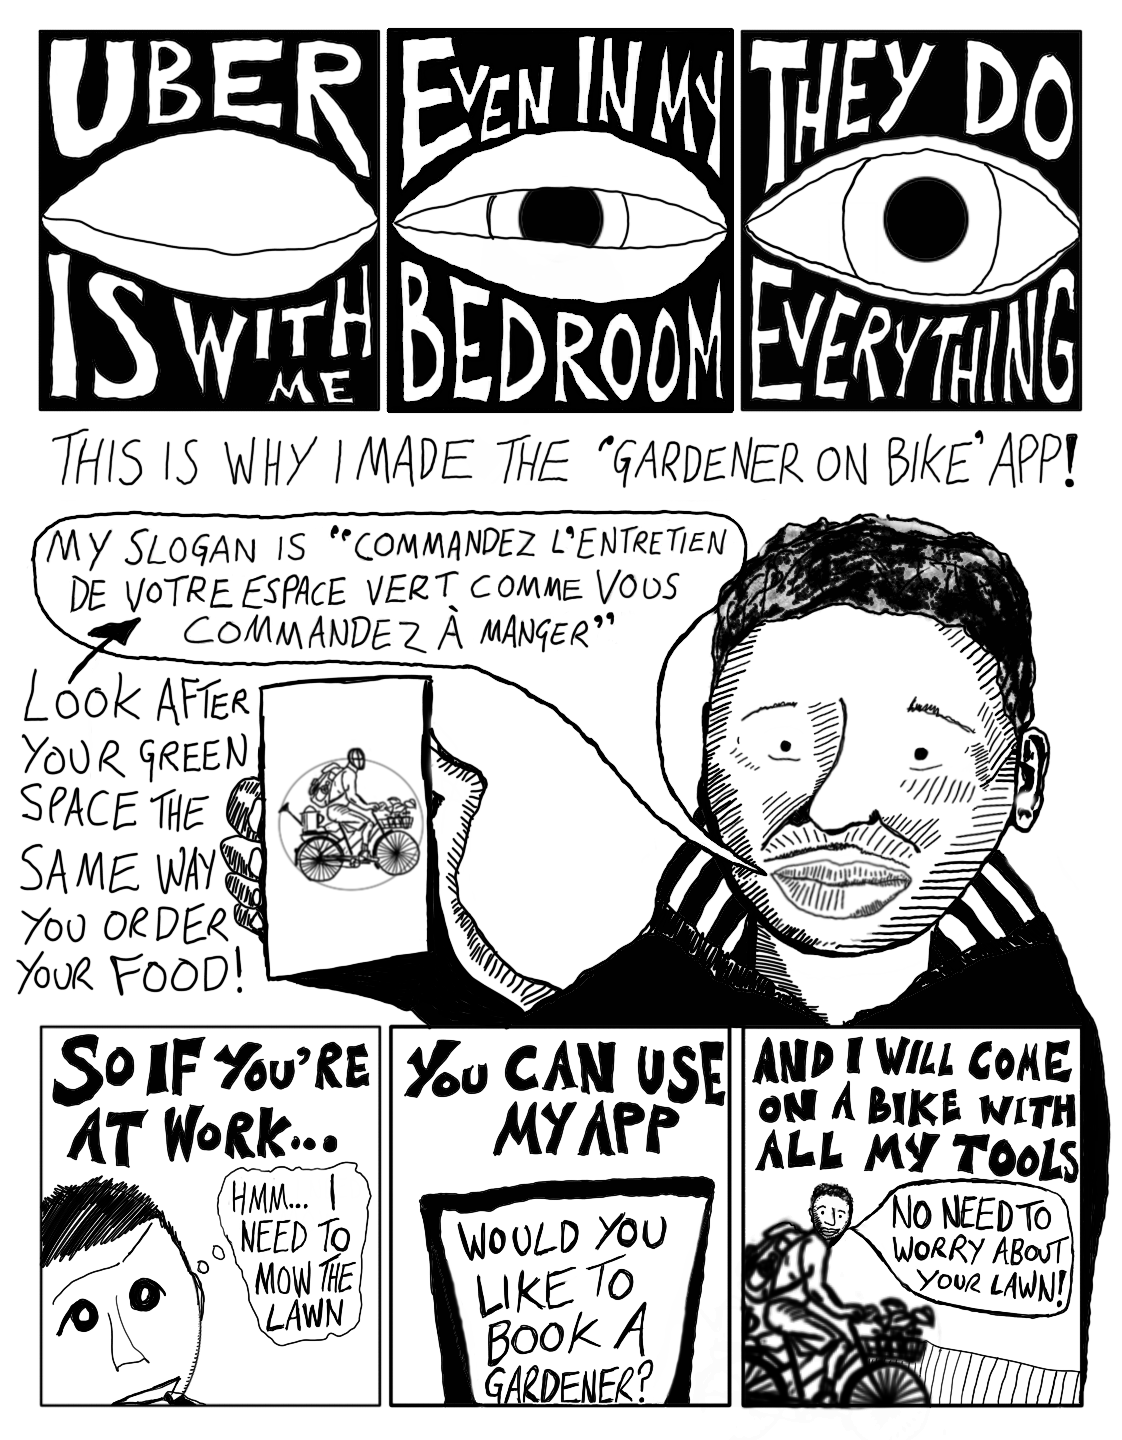 UBER
IS WITH
ME
EVEN IN MY
BEDROOM
THEY DO
EVERYTHING
THIS IS WHY I MADE THE 'GARDENER ON BIKE' APP!
MY SLOGAN IS "COMMANDEZ L'ENTRETIEN
DE VOTRE ESPACE VERT COMME VOUS
COMMANDEZ À MANGER"
LOOK AFTER
YOUR GREEN
SPACE THE
SAME WAY
YOU ORDER
YOUR FOOD!
SO IF YOU'RE
AT WORK...
HMM... I
NEED TO
MOW THE
LAWN
YOU CAN USE
MY APP
WOULD YOU
LIKE TO
BOOK A
GARDENER?
AND I WILL COME
ON A BIKE WITH
ALL MY TOOLS
NO NEED TO
WORRY ABOUT
YOUR LAWN!